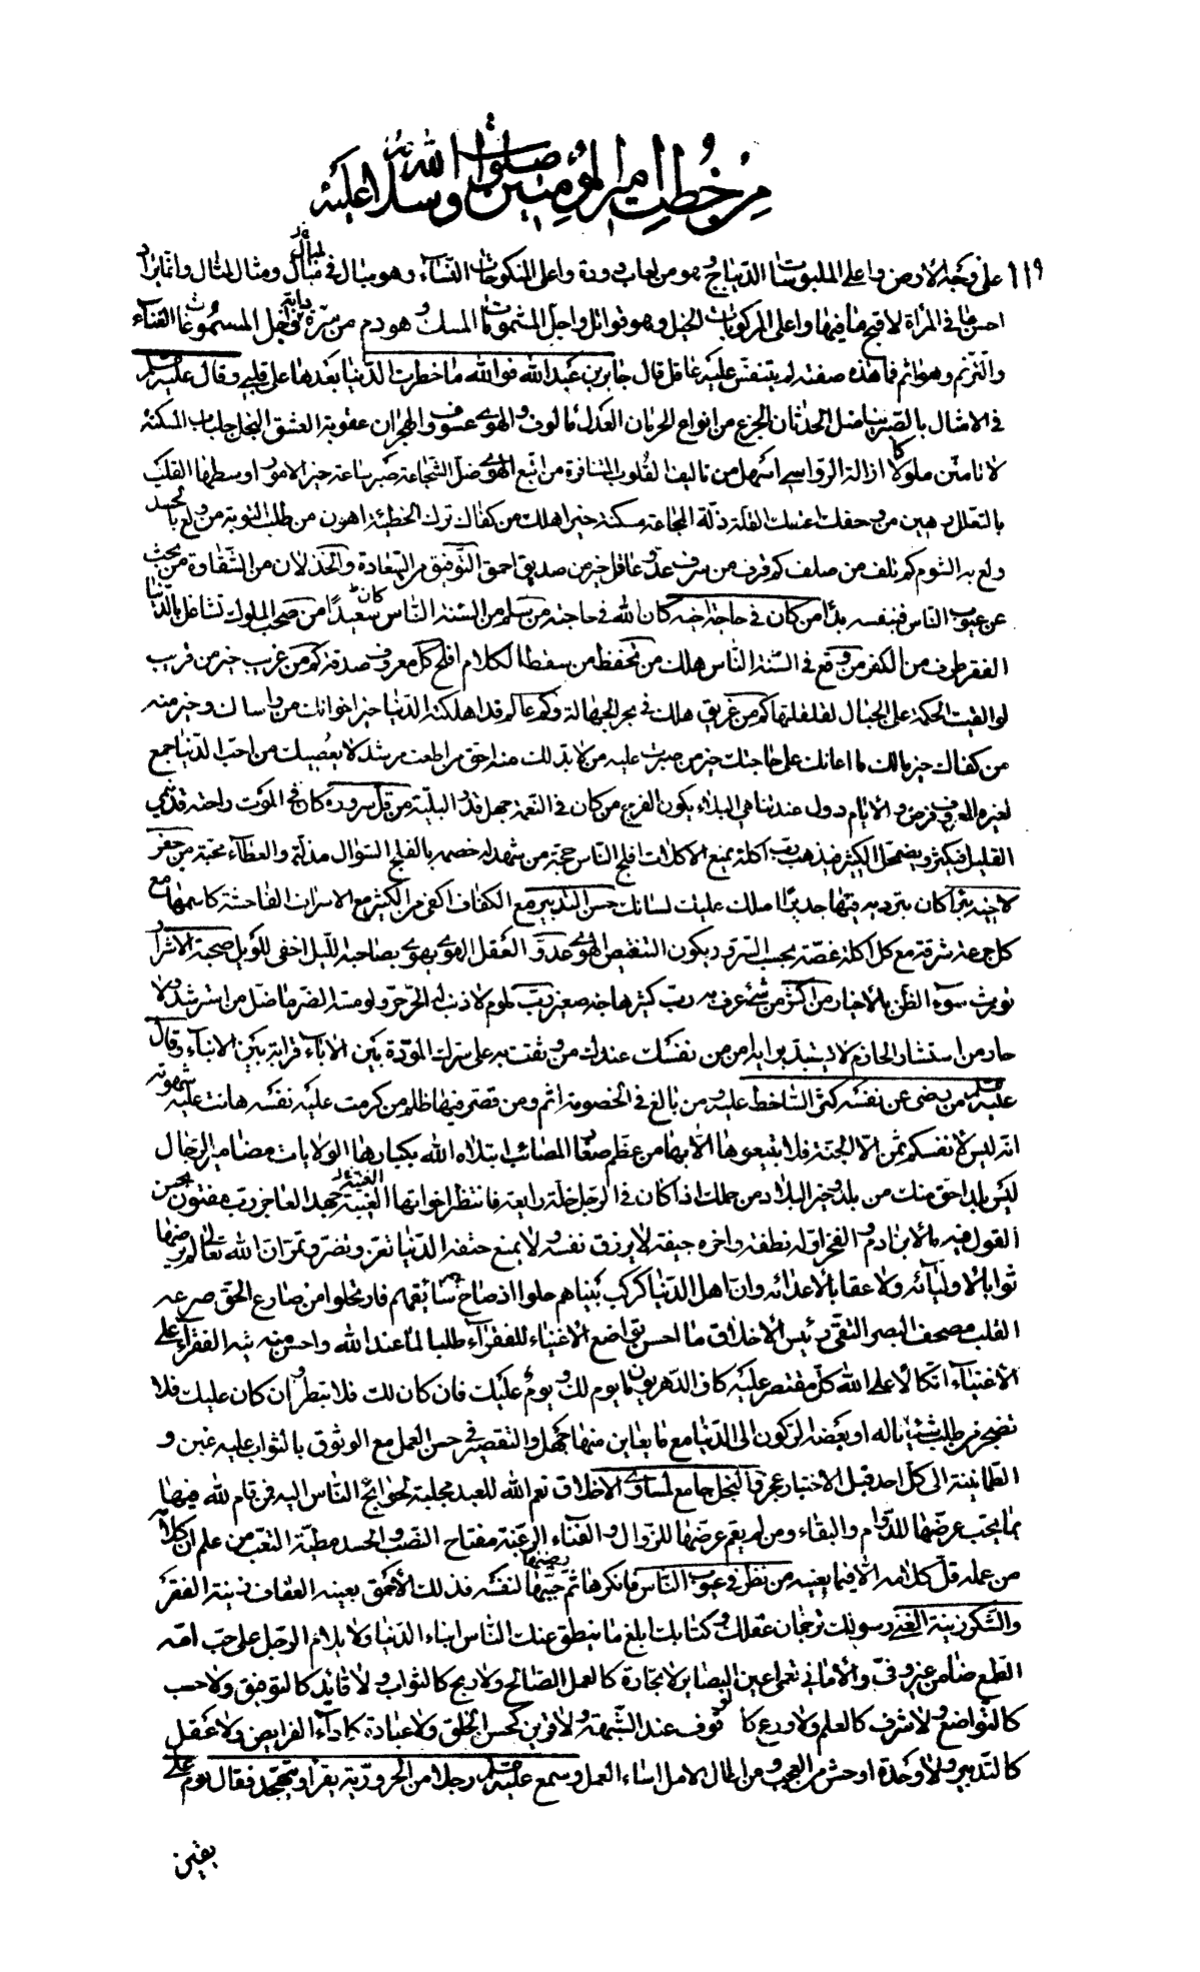 من خطب امير المؤمنين صلوات الله وسلامه عليه
١١٩ على وجه الارض واعلى الملبوسات الديباج وهو من لعاب دودة واعلى المنكوحات النساء وهو مبال في مبال ومثال لمثال وانما يراد
احسن ما في المرأة لاقبح ما فيها واعلى المركوبات الخيل وهو قواتل واجل المشمومات المسك وهو دم من سرة دابة واجل المسموعات الغناء
والترنم وهو اثم فما هذه صفته لم يتنفس عليه عاقل قال جابر بن عبد الله فوالله ما خطرت الدنيا بعدها على قلبي وقال عليه السلم
في الامثال بالصبر يناضل الحدثان الجزع من انواع الحرمان العدل مالوف والهوى عسوف والهجران عقوبة العشق البخل جلباب المسكنة
لا تامنن ملولا ازالة الرواسي اسهل من تاليف القلوب المتنافرة من اتبع الهوى ضل الشجاعة صبر ساعة خير الامور اوسطها القلب
بالتعلل رهين من ومقك اعتبك القلة ذلة المجاعة مسكنة خير اهلك من كفاك ترك الخطيئة اهون من طلب التوبة من ولع بالحسد
ولع به الشوم كم تلف من صلف كم قرف من سرف عدو عاقل خير من صديق احمق التوفيق من السعادة والخذلان من الشقاوة من بحث
عن عيوب الناس فبنفسه بدأ من كان في حاجة اخيه كان الله في حاجته من سلم من السنة الناس كان سعيدا من صحب الملوك تشاغل بالدنيا
الفقر طرف من الكفر من وقع في السنة الناس هلك من تحفظ من سقط الكلام افلح كل معروف صدقة كم من غريب خير من قريب
لو القيت الحكمة على الجبال لقلقلتها كم من غريق هلك في بحر الجهالة وكم عالم قد اهلكته الدنيا خير اخوانك من واساك وخير منه
من كفاك خير مالك ما اعانك على حاجتك خير من صبرت عليه من لا بد لك منه احق من اطعت مرشد لا يعصيك من احب الدنيا جمع
لغيره المعروف فرض والايام دول عند تناهي البلاء يكون الفرج من كان في النعمة جهل قدر البلية من قل سروره كان في الموت راحته قد ينمي
القليل فيكثر ويضمحل الكثير فيذهب رب اكلة يمنع الاكلات افلج الناس حجة من شهد له خصمه بالفلج السؤال مذلة والعطاء محبة من حفر
لاخيه بئرا كان بترديه فيها جديرا املك عليك لسانك حسن التدبير مع الكفاف اكفى من الكثير مع الاسراف الفاحشة كاسمها مع
كل جرعة شرقة مع كل اكلة غصة بحسب السرور يكون التنغيص الهوى عدو العقل الهوى يهوي بصاحبه الليل اخفى للويل صحبة الاشرار
تورث سوء الظن بالاخيار من اكثر من شيء عرف به رب كثير هاجه صغير رب ملوم لا ذنب له الحر حر ولو مسه الضر ما ضل من استرشد ولا
حار من استشار الحازم لا يستبد برايه امن من نفسك عندك من وثقت به على سرك المودة بين الاباء قرابة بين الابناء وقال
عليه السلم من رضي عن نفسه كثر الساخط عليه ومن بالغ في الخصومة اثم ومن قصر فيها ظلم من كرمت عليه نفسه هانت عليه شهوته
انه ليس لانفسكم ثمن الا الجنة فلا تبيعوها الا بها من عظم صغار المصائب ابتلاه الله بكبارها الولايات مضامير الرجال
ليس بلد احق منك من بلد وخير البلاد من حملك اذا كان في الرجل خلة رايعة فانتظر اخواتها الغيبة جهد العاجز رب مفتون بحسن
القول فيه ما لابن ادم والفخر اوله نطفة واخره جيفة لا يرزق نفسه ولا يمنع حتفه الدنيا تغر وتضر وتمر ان الله تعالى لم يرضها
ثوابا لاوليائه ولا عقابا لاعدائه وان اهل الدنيا كركب بيناهم حلوا اذ صاح سائقهم فارتحلوا من صارع الحق صرعه
القلب مصحف البصر التقى رئيس الاخلاق ما احسن تواضع الاغنياء للفقراء طلبا لما عند الله واحسن منه تيه الفقراء على
الاغنياء اتكالا على الله كل مقتصر عليه كاف الدهر يومان يوم لك ويوم عليك فان كان لك فلا تبطر وان كان عليك فلا
تضجر من طلب شيئا ناله او بعضه الركون الى الدنيا مع ما يعاين منها جهل والتقصير في حسن العمل مع الوثوق بالثواب عليه غبن و
الطمانينة الى كل احد قبل الاختبار عجز والبخل جامع لمساوى الاخلاق نعم الله للعبد مجلبة لحوائج الناس اليه فمن قام لله فيها
بما يجب عرضها للدوام والبقاء ومن لم يقم عرضها للزوال والفناء الرغبة مفتاح النصب والحسد مطية التعب من علم ان كلامه
من عمله قل كلامه الا فيما يعنيه من نظر في عيوب الناس فانكرها ثم رضيها لنفسه فذلك الاحمق بعينه العفاف زينة الفقر
والشكر زينة الغنى رسولك ترجمان عقلك وكتابك ابلغ ما ينطق عنك الناس ابناء الدنيا ولا يلام الرجل على حب امه
الطمع ضامن غير وفي والاماني تعمي اعين البصائر لا تجارة كالعمل الصالح ولا ربح كالثواب ولا قائد كالتوفيق ولا حسب
كالتواضع ولا شرف كالعلم ولا ورع كالوقوف عند الشبهة ولا قرين كحسن الخلق ولا عبادة كاداء الفرايض ولا عقل
كالتدبير ولا وحدة اوحش من العجب ومن اطال الامل اساء العمل وسمع عليه السلم رجلا من الحرورية يقرأ ويتهجد فقال نوم على
يقين